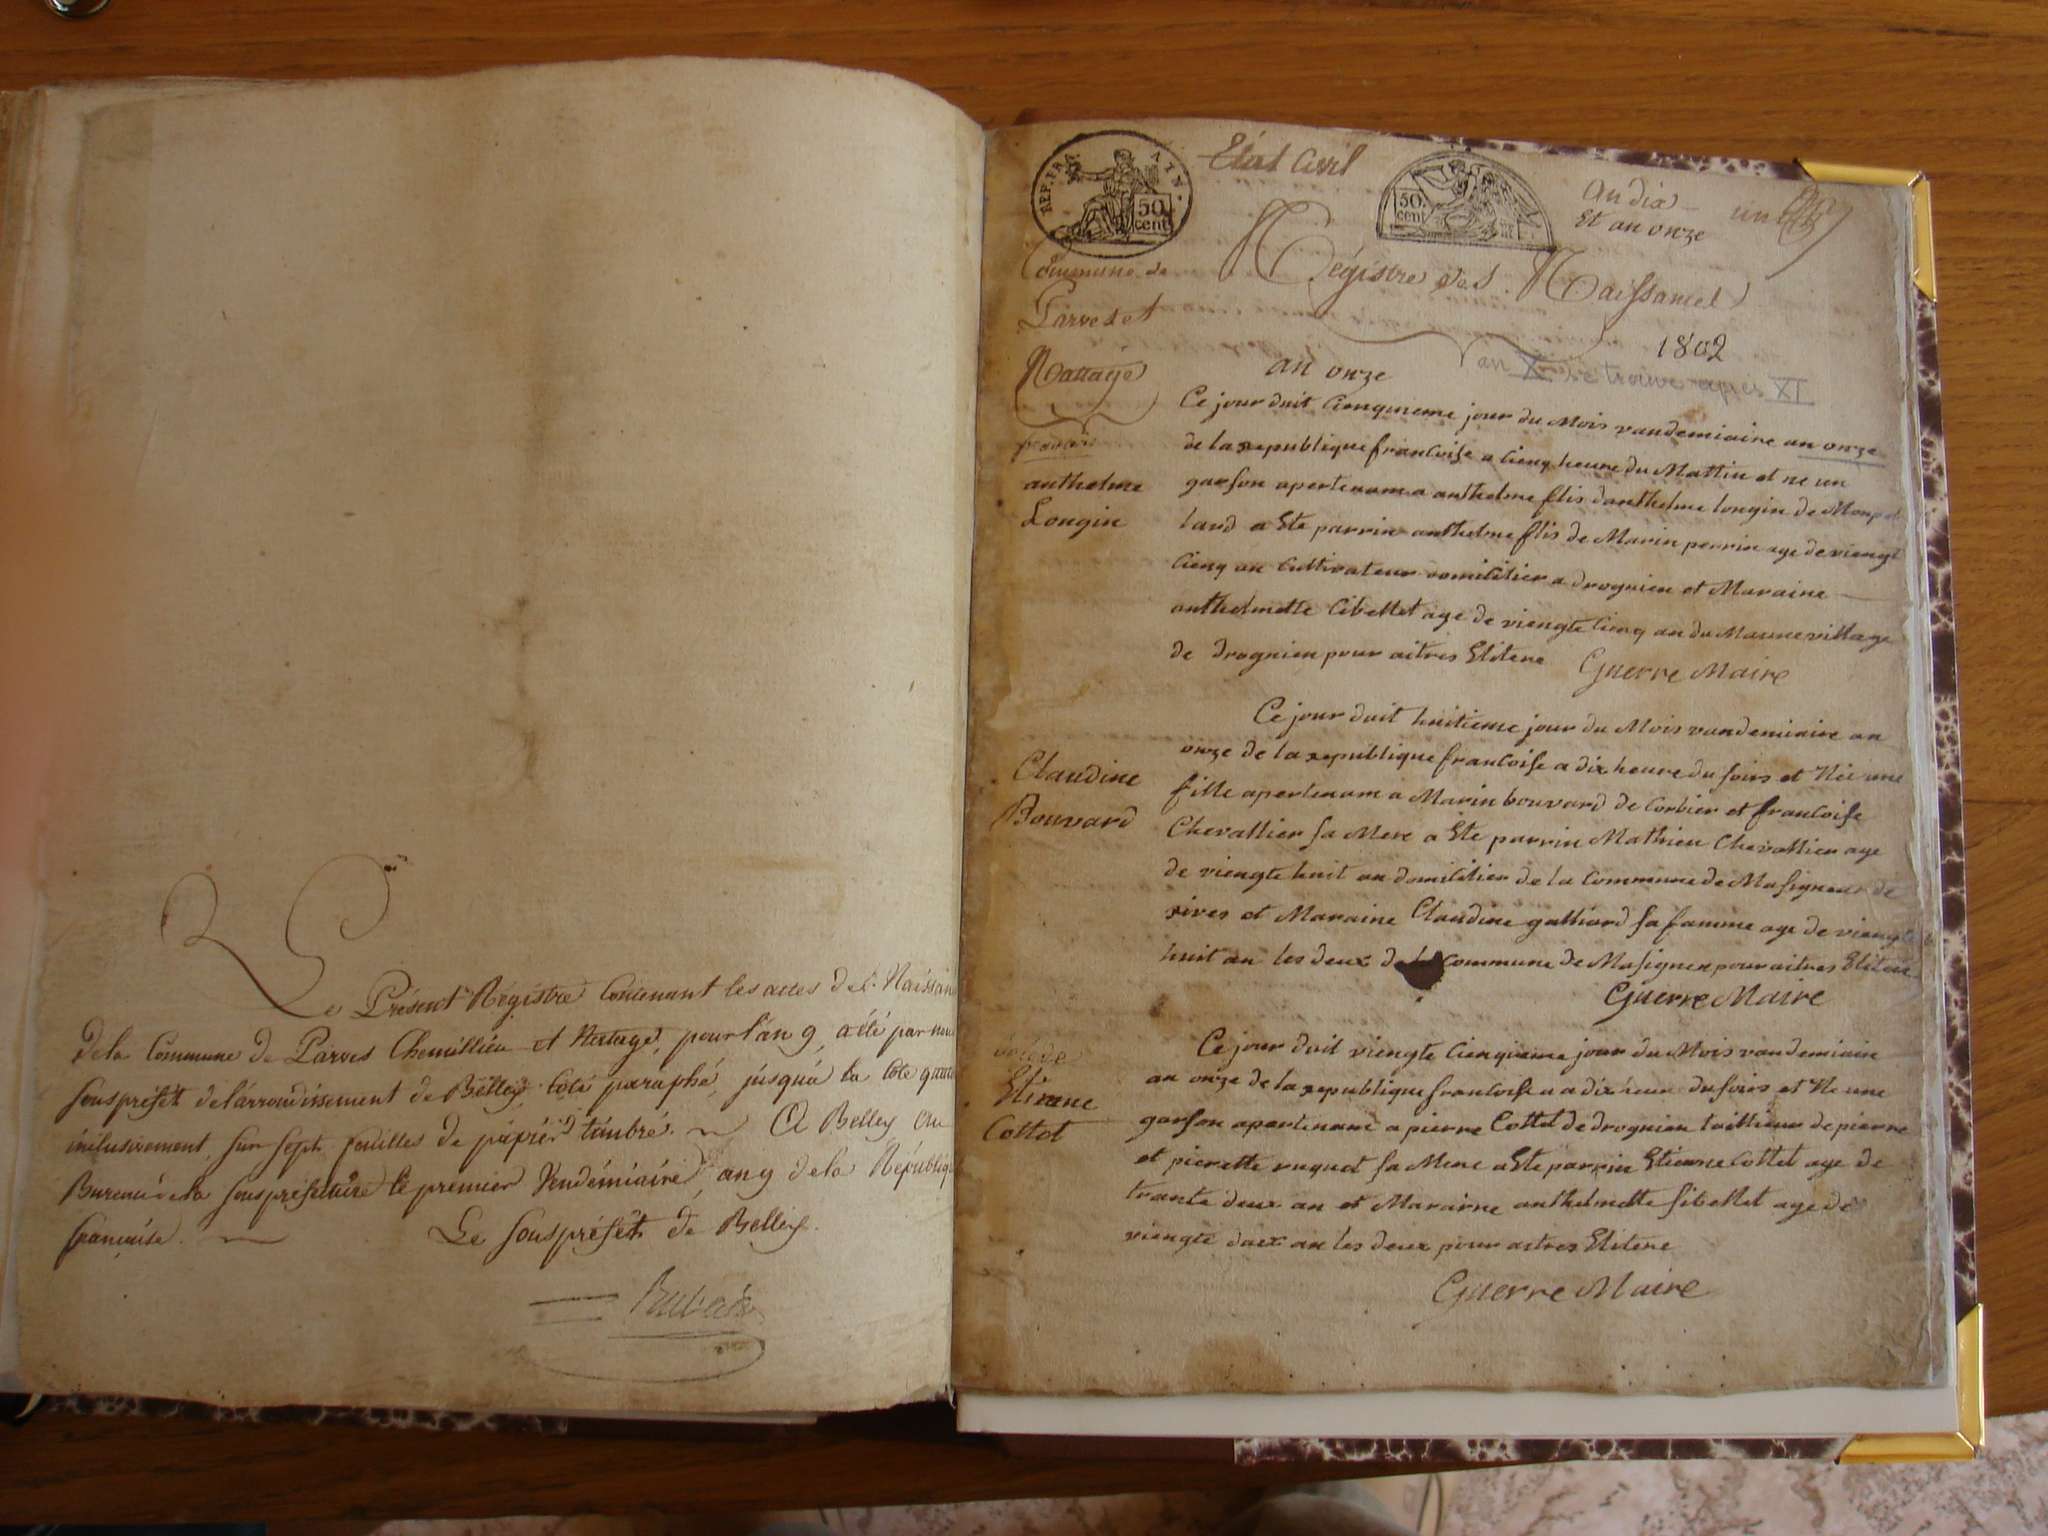 Le Présent Régistre Contenant les actes de Naissan
de la Commune de Parves Chemillieu et Nattage, pour l'an 9, a été par nous
souspréfèt de l'arrondissement de Belley coté paraphé, jusqu'à la cote quatr
inclusivement, sur sept feuilles de papier timbré. A Belley au
Bureau de la souspréfecture le premier Vendémiaire, an 9 de la République
française.
Le souspréfèt de Belley.
REP. FRA. AIN.
50 cent
Etat Civil
50 cent
an dix
Et an onze
un
Commune de
Parves et
Nattage
Régistre des Naissances
1802
an X se trouve apres XI
an onze
anthelme
Longin
Ce jour duit Cienquieme jour du Mois vandemiaire an onze
de la republique francoise a cienq heure du Mattin et ne un
garson apertenam a anthelme flis danthelme longin de Monp
lard a Ete parrin anthelme flis de Marin perrin age de viengt
cienq an Cultivateur domicilier a drognien et Maraine
anthelmette Cibellet age de viengte cienq an du Maime village
de drognien pour aitres Etitere Guerre Maire
Claudine
Bouvard
Ce jour duit huitieme jour du Mois vandemiaire an
onze de la republique francoise a dix heure du soirs et Née une
fille apertenam a Marin bouvard de Corbier et francoise
Chevallier sa Mere a Ete parrin Mathieu Chevallier age
de viengte huit an domicilier de la Commune de Masigneux de
rives et Maraine Claudine galliard sa famme age de viengte
huit an les deux de la Commune de Masignex pour aitres Etitere
Guerre Maire
Etienne
Cottet
Ce jour duit viengte Cienquieme jour du Mois vandemiair
an onze de la republique francoise a a dix heur du soirs et Ne une
garson apertenant a pierre Cottet de drognien taillieur de pierre
et pierette ruquet sa Mere a Ete parrin Etienne Cottet age de
trante deux an et Maraine anthelmette sibellet age de
viengte daex an les deux pour aitres Etitere
Guerre Maire